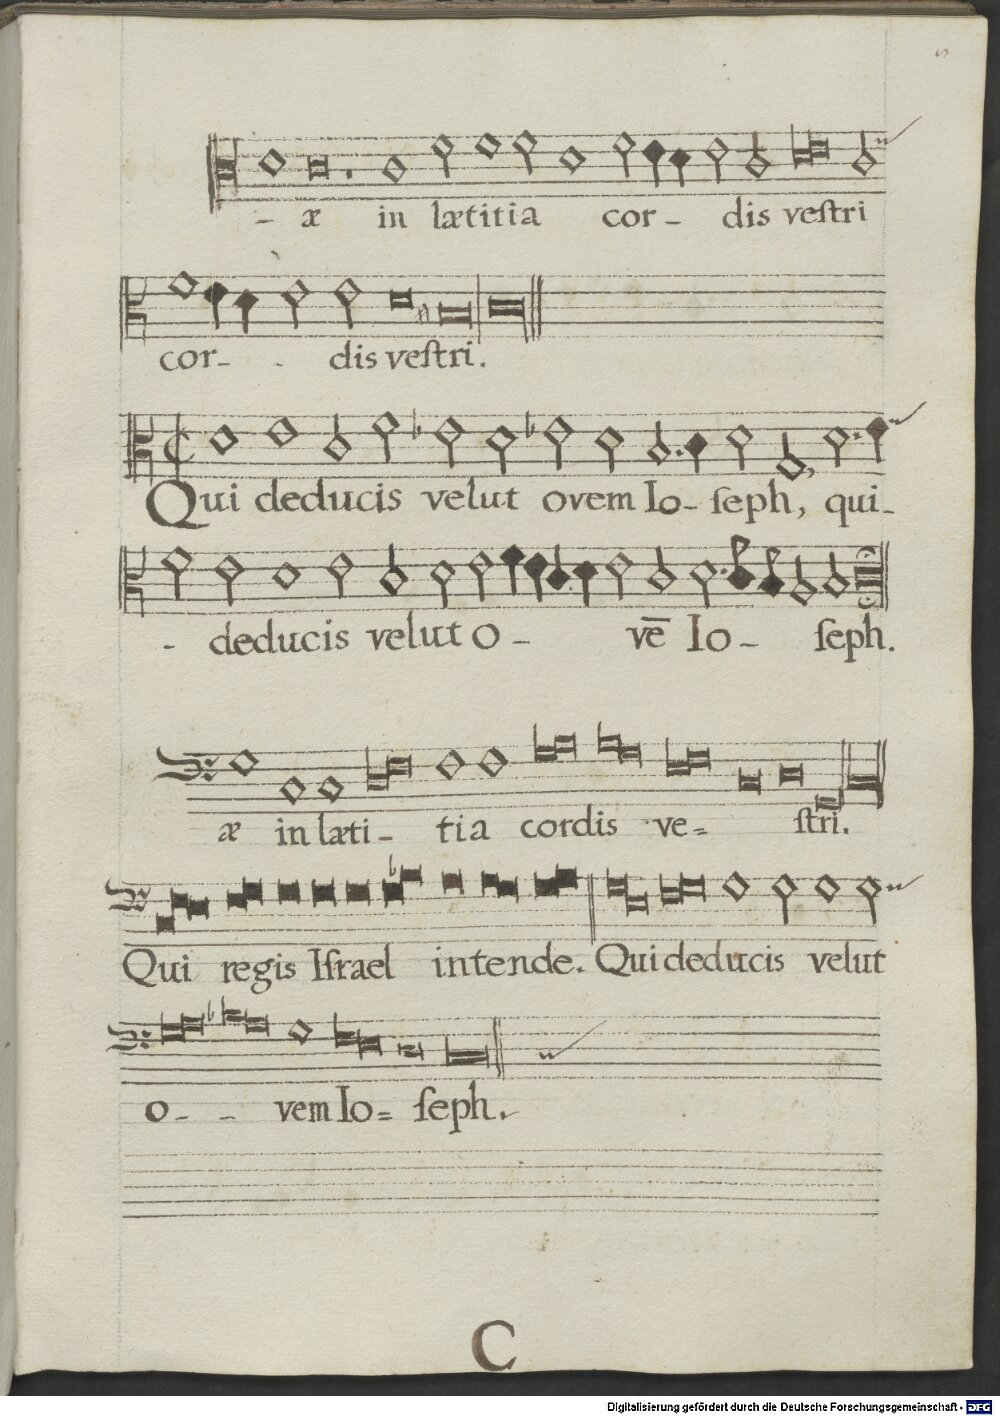 - æ in lætitia cor - dis veſtri
cor - - dis veſtri.
Qui deducis velut ovem Io - ſeph, qui -
- deducis velut o - vē Io - ſeph.
æ in læti - tia cordis ve = ſtri.
Qui regis Iſrael intende. Qui deducis velut
o - - vem Io = ſeph.
C
Digitalisierung gefördert durch die Deutsche Forschungsgemeinschaft - DFG